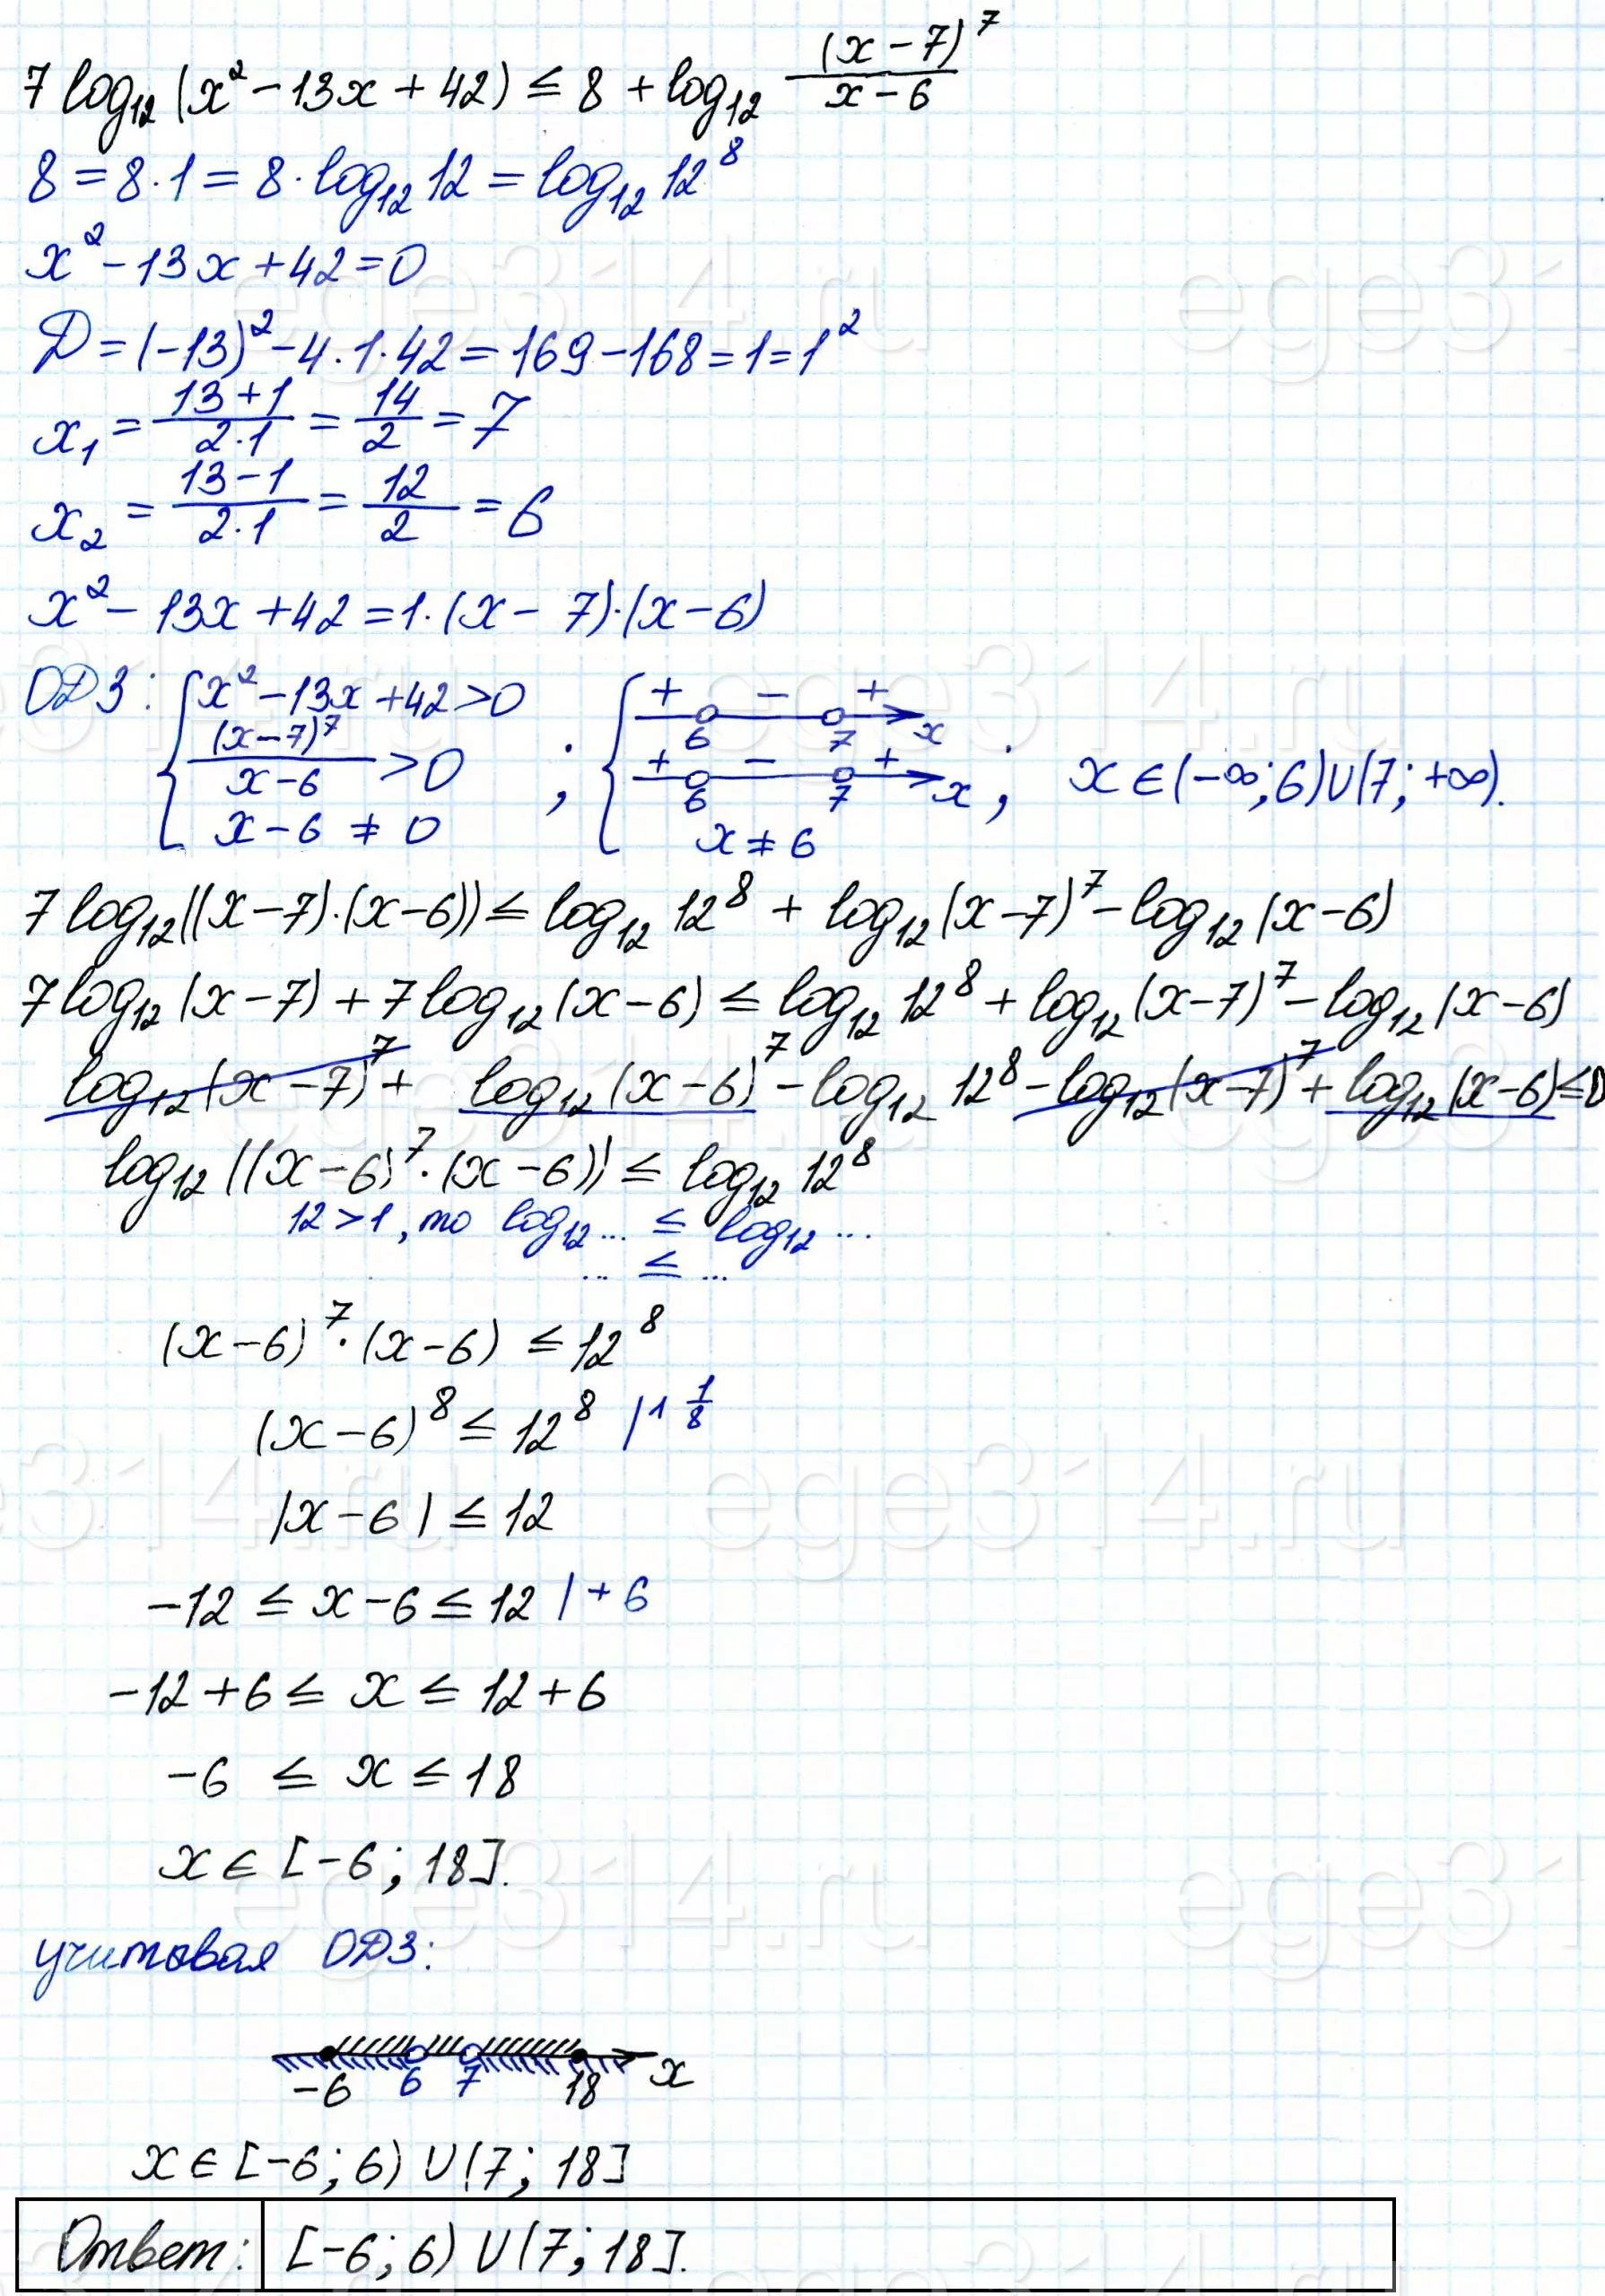 7 log₁₂ (x² − 13x + 42) ≤ 8 + log₁₂ (x − 7)⁷ / (x − 6)
8 = 8 · 1 = 8 · log₁₂ 12 = log₁₂ 12⁸
x² − 13x + 42 = 0
D = (−13)² − 4 · 1 · 42 = 169 − 168 = 1 = 1²
x₁ = (13 + 1) / (2 · 1) = 14/2 = 7
x₂ = (13 − 1) / (2 · 1) = 12/2 = 6
x² − 13x + 42 = 1 · (x − 7) · (x − 6)
ОДЗ: { x² − 13x + 42 > 0
(x − 7)⁷ / (x − 6) > 0
x − 6 ≠ 0 ;
{ + − +
6 7 x
+ − +
6 7 x
x ≠ 6 ;
x ∈ (−∞; 6) ∪ (7; +∞).
7 log₁₂ ((x − 7) · (x − 6)) ≤ log₁₂ 12⁸ + log₁₂ (x − 7)⁷ − log₁₂ (x − 6)
7 log₁₂ (x − 7) + 7 log₁₂ (x − 6) ≤ log₁₂ 12⁸ + log₁₂ (x − 7)⁷ − log₁₂ (x − 6)
log₁₂ (x − 7)⁷ + log₁₂ (x − 6)⁷ − log₁₂ 12⁸ − log₁₂ (x − 7)⁷ + log₁₂ (x − 6) ≤ 0
log₁₂ ((x − 6)⁷ · (x − 6)) ≤ log₁₂ 12⁸
12 > 1, то log₁₂ ... ≤ log₁₂ ...
... ≤ ...
(x − 6)⁷ · (x − 6) ≤ 12⁸
(x − 6)⁸ ≤ 12⁸ | ^ 1/8
|x − 6| ≤ 12
−12 ≤ x − 6 ≤ 12 | + 6
−12 + 6 ≤ x ≤ 12 + 6
−6 ≤ x ≤ 18
x ∈ [−6; 18].
учитовая ОДЗ:
−6 6 7 18 x
x ∈ [−6; 6) ∪ (7; 18]
Ответ: [−6; 6) ∪ (7; 18].
ege314.ru